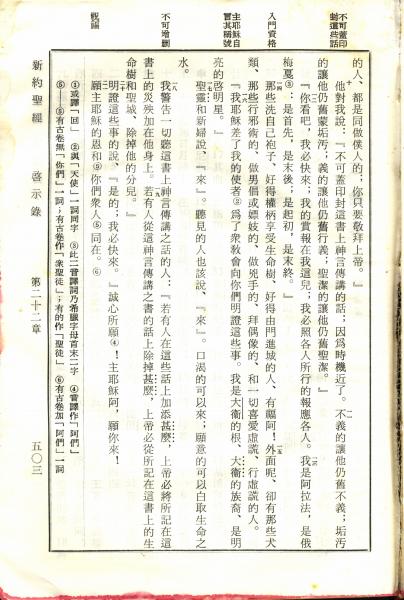 不可蓋印
封這些話
入門資格
主耶穌自
宣其稱號
不可增删
祝福
的人、都是同做僕人的；你只要敬拜上帝。』
他對我說：『不可蓋印封這書上神言傳講的話；因爲時機近了。不義的讓他仍舊不義；垢污
的讓他仍舊蒙垢污；義的讓他仍舊行義；聖潔的讓他仍舊聖潔。』
『你看吧，我必快來；我的賞報在我這兒；我必照各人所行的報應各人。我是阿拉法，是俄
梅戛③：是首先，是末後；是起初，是末終。』
那些洗自己袍子、好得權柄享受生命樹、好得由門進城的人、有福阿！外面呢，卻有那些犬
類、那些行邪術的、做男倡或嫖妓的、做兇手的、拜偶像的、和一切喜愛虛謊、行虛謊的人。
『我耶穌差了我的使者②爲了衆教會向你們明證這些事。我是大衞的根、大衞的族裔、是明
亮的啓明星。』
聖靈和新婦說、『來』。聽見的人也該說、『來』。口渴的可以來；願意的可以白取生命之
水。
我警告一切聽這書上神言傳講之話的人：『若有人在這些話上加添甚麼，上帝必將所記在這
書上的災殃加在他身上。若有人從這神言傳講之書的話上除掉甚麼，上帝必從所記在這書上的生
命樹和聖城、除掉他的分兒。』
明證這些事的說、『是的；我必快來。』誠心所願④！主耶穌阿，願你來！
願主耶穌的恩和⑤你們衆人⑤同在。⑥
①或譯『回』 ②與『天使』一詞同字 ③此二音譯詞乃希臘字母首末二字 ④音譯作『阿們』
⑤—⑤有古卷無『你們』一詞；有古卷作『衆聖徒』；有的作『聖徒』 ⑥有古卷加『阿們』一詞
新約聖經 啓示錄 第二十二章 五〇三